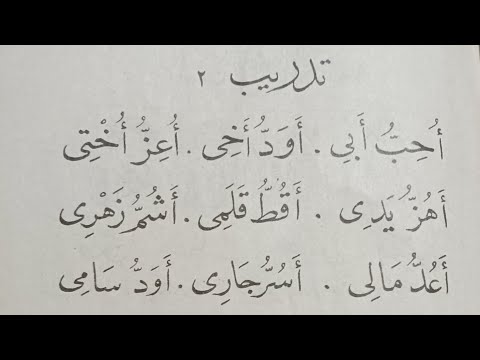 تدريب ٢
أُحِبُّ أَبِي . أَوَدُّ أَخِى . أُعِزُّ أُخْتِى
أَهُزُّ يَدِى . أَقُطُّ قَلَمِى . أَشُمُّ زَهْرِى
أَعُدُّ مَالِى . أَسُرُّ جَارِى . أَوَدُّ سَامِى